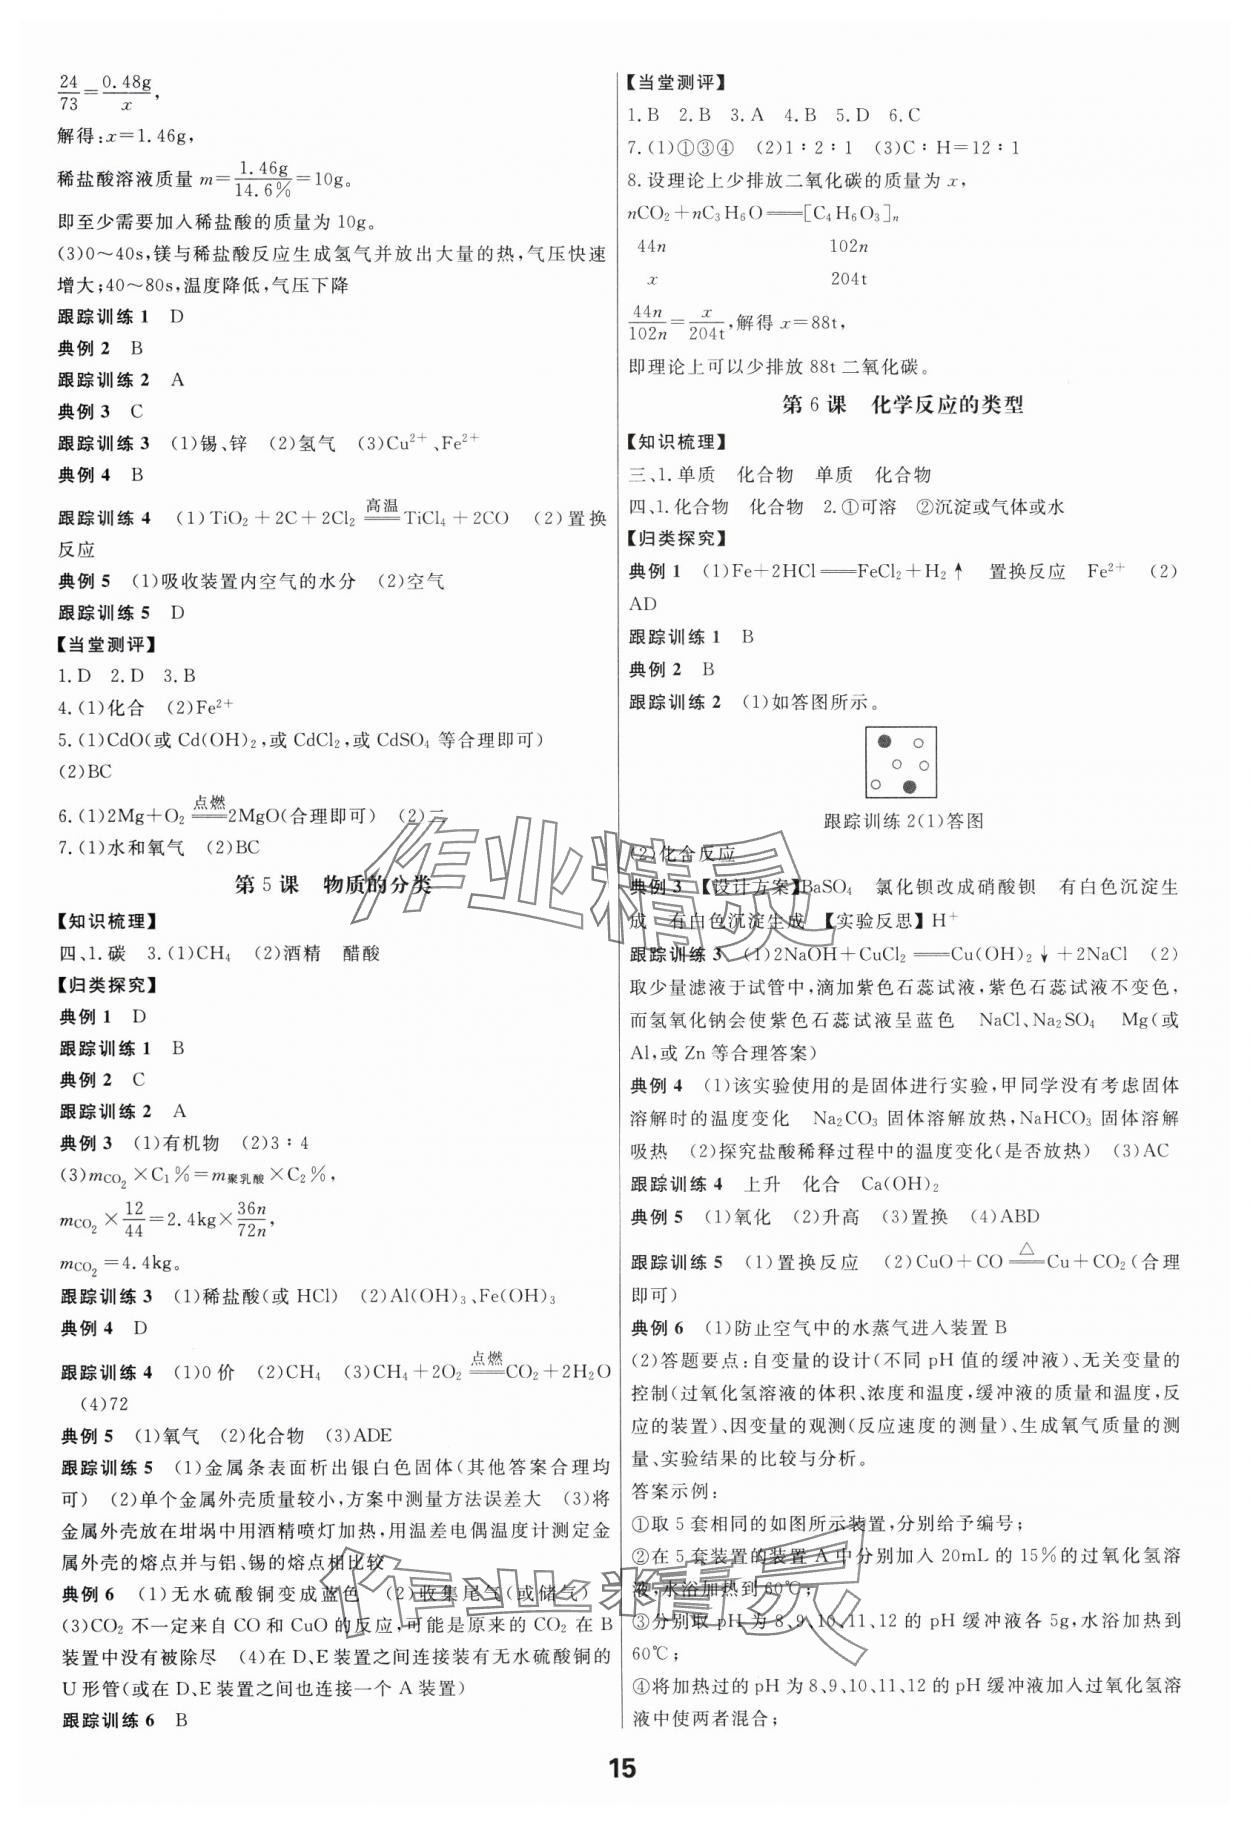 24/73=0.48g/x,
解得:x=1.46g,
稀盐酸溶液质量 m=1.46g/14.6%=10g。
即至少需要加入稀盐酸的质量为 10g。
(3)0～40s,镁与稀盐酸反应生成氢气并放出大量的热,气压快速
增大;40～80s,温度降低,气压下降
跟踪训练 1 D
典例 2 B
跟踪训练 2 A
典例 3 C
跟踪训练 3 (1)锡、锌 (2)氢气 (3)Cu²⁺、Fe²⁺
典例 4 B
跟踪训练 4 (1)TiO₂+2C+2Cl₂ 高温══ TiCl₄+2CO (2)置换
反应
典例 5 (1)吸收装置内空气的水分 (2)空气
跟踪训练 5 D
【当堂测评】
1.D 2.D 3.B
4.(1)化合 (2)Fe²⁺
5.(1)CdO(或 Cd(OH)₂,或 CdCl₂,或 CdSO₄ 等合理即可)
(2)BC
6.(1)2Mg+O₂ 点燃══ 2MgO(合理即可) (2)二
7.(1)水和氧气 (2)BC
第 5 课 物质的分类
【知识梳理】
四、1.碳 3.(1)CH₄ (2)酒精 醋酸
【归类探究】
典例 1 D
跟踪训练 1 B
典例 2 C
跟踪训练 2 A
典例 3 (1)有机物 (2)3∶4
(3)m_CO₂×C₁%=m_聚乳酸×C₂%,
m_CO₂×12/44=2.4kg×36n/72n,
m_CO₂=4.4kg。
跟踪训练 3 (1)稀盐酸(或 HCl) (2)Al(OH)₃、Fe(OH)₃
典例 4 D
跟踪训练 4 (1)0 价 (2)CH₄ (3)CH₄+2O₂ 点燃══ CO₂+2H₂O
(4)72
典例 5 (1)氧气 (2)化合物 (3)ADE
跟踪训练 5 (1)金属条表面析出银白色固体(其他答案合理均
可) (2)单个金属外壳质量较小,方案中测量方法误差大 (3)将
金属外壳放在坩埚中用酒精喷灯加热,用温差电偶温度计测定金
属外壳的熔点并与铝、锡的熔点相比较
典例 6 (1)无水硫酸铜变成蓝色 (2)收集尾气(或储气)
(3)CO₂ 不一定来自 CO 和 CuO 的反应,可能是原来的 CO₂ 在 B
装置中没有被除尽 (4)在 D、E 装置之间连接装有无水硫酸铜的
U 形管(或在 D、E 装置之间也连接一个 A 装置)
跟踪训练 6 B
【当堂测评】
1.B 2.B 3.A 4.B 5.D 6.C
7.(1)①③④ (2)1∶2∶1 (3)C∶H=12∶1
8.设理论上少排放二氧化碳的质量为 x,
nCO₂+nC₃H₆O══[C₄H₆O₃]ₙ
44n 102n
x 204t
44n/102n=x/204t,解得 x=88t,
即理论上可以少排放 88t 二氧化碳。
第 6 课 化学反应的类型
【知识梳理】
三、1.单质 化合物 单质 化合物
四、1.化合物 化合物 2.①可溶 ②沉淀或气体或水
【归类探究】
典例 1 (1)Fe+2HCl══FeCl₂+H₂↑ 置换反应 Fe²⁺ (2)
AD
跟踪训练 1 B
典例 2 B
跟踪训练 2 (1)如答图所示。
跟踪训练 2(1)答图
(2)化合反应
典例 3 【设计方案】BaSO₄ 氯化钡改成硝酸钡 有白色沉淀生
成 有白色沉淀生成 【实验反思】H⁺
跟踪训练 3 (1)2NaOH+CuCl₂══Cu(OH)₂↓+2NaCl (2)
取少量滤液于试管中,滴加紫色石蕊试液,紫色石蕊试液不变色,
而氢氧化钠会使紫色石蕊试液呈蓝色 NaCl、Na₂SO₄ Mg(或
Al,或 Zn 等合理答案)
典例 4 (1)该实验使用的是固体进行实验,甲同学没有考虑固体
溶解时的温度变化 Na₂CO₃ 固体溶解放热,NaHCO₃ 固体溶解
吸热 (2)探究盐酸稀释过程中的温度变化(是否放热) (3)AC
跟踪训练 4 上升 化合 Ca(OH)₂
典例 5 (1)氧化 (2)升高 (3)置换 (4)ABD
跟踪训练 5 (1)置换反应 (2)CuO+CO △══ Cu+CO₂(合理
即可)
典例 6 (1)防止空气中的水蒸气进入装置 B
(2)答题要点:自变量的设计(不同 pH 值的缓冲液)、无关变量的
控制(过氧化氢溶液的体积、浓度和温度,缓冲液的质量和温度,反
应的装置)、因变量的观测(反应速度的测量)、生成氧气质量的测
量、实验结果的比较与分析。
答案示例:
①取 5 套相同的如图所示装置,分别给予编号;
②在 5 套装置的装置 A 中分别加入 20mL 的 15%的过氧化氢溶
液,水浴加热到 60℃;
③分别取 pH 为 8、9、10、11、12 的 pH 缓冲液各 5g,水浴加热到
60℃;
④将加热过的 pH 为 8、9、10、11、12 的 pH 缓冲液加入过氧化氢溶
液中使两者混合;
15
作业精灵
作业精灵